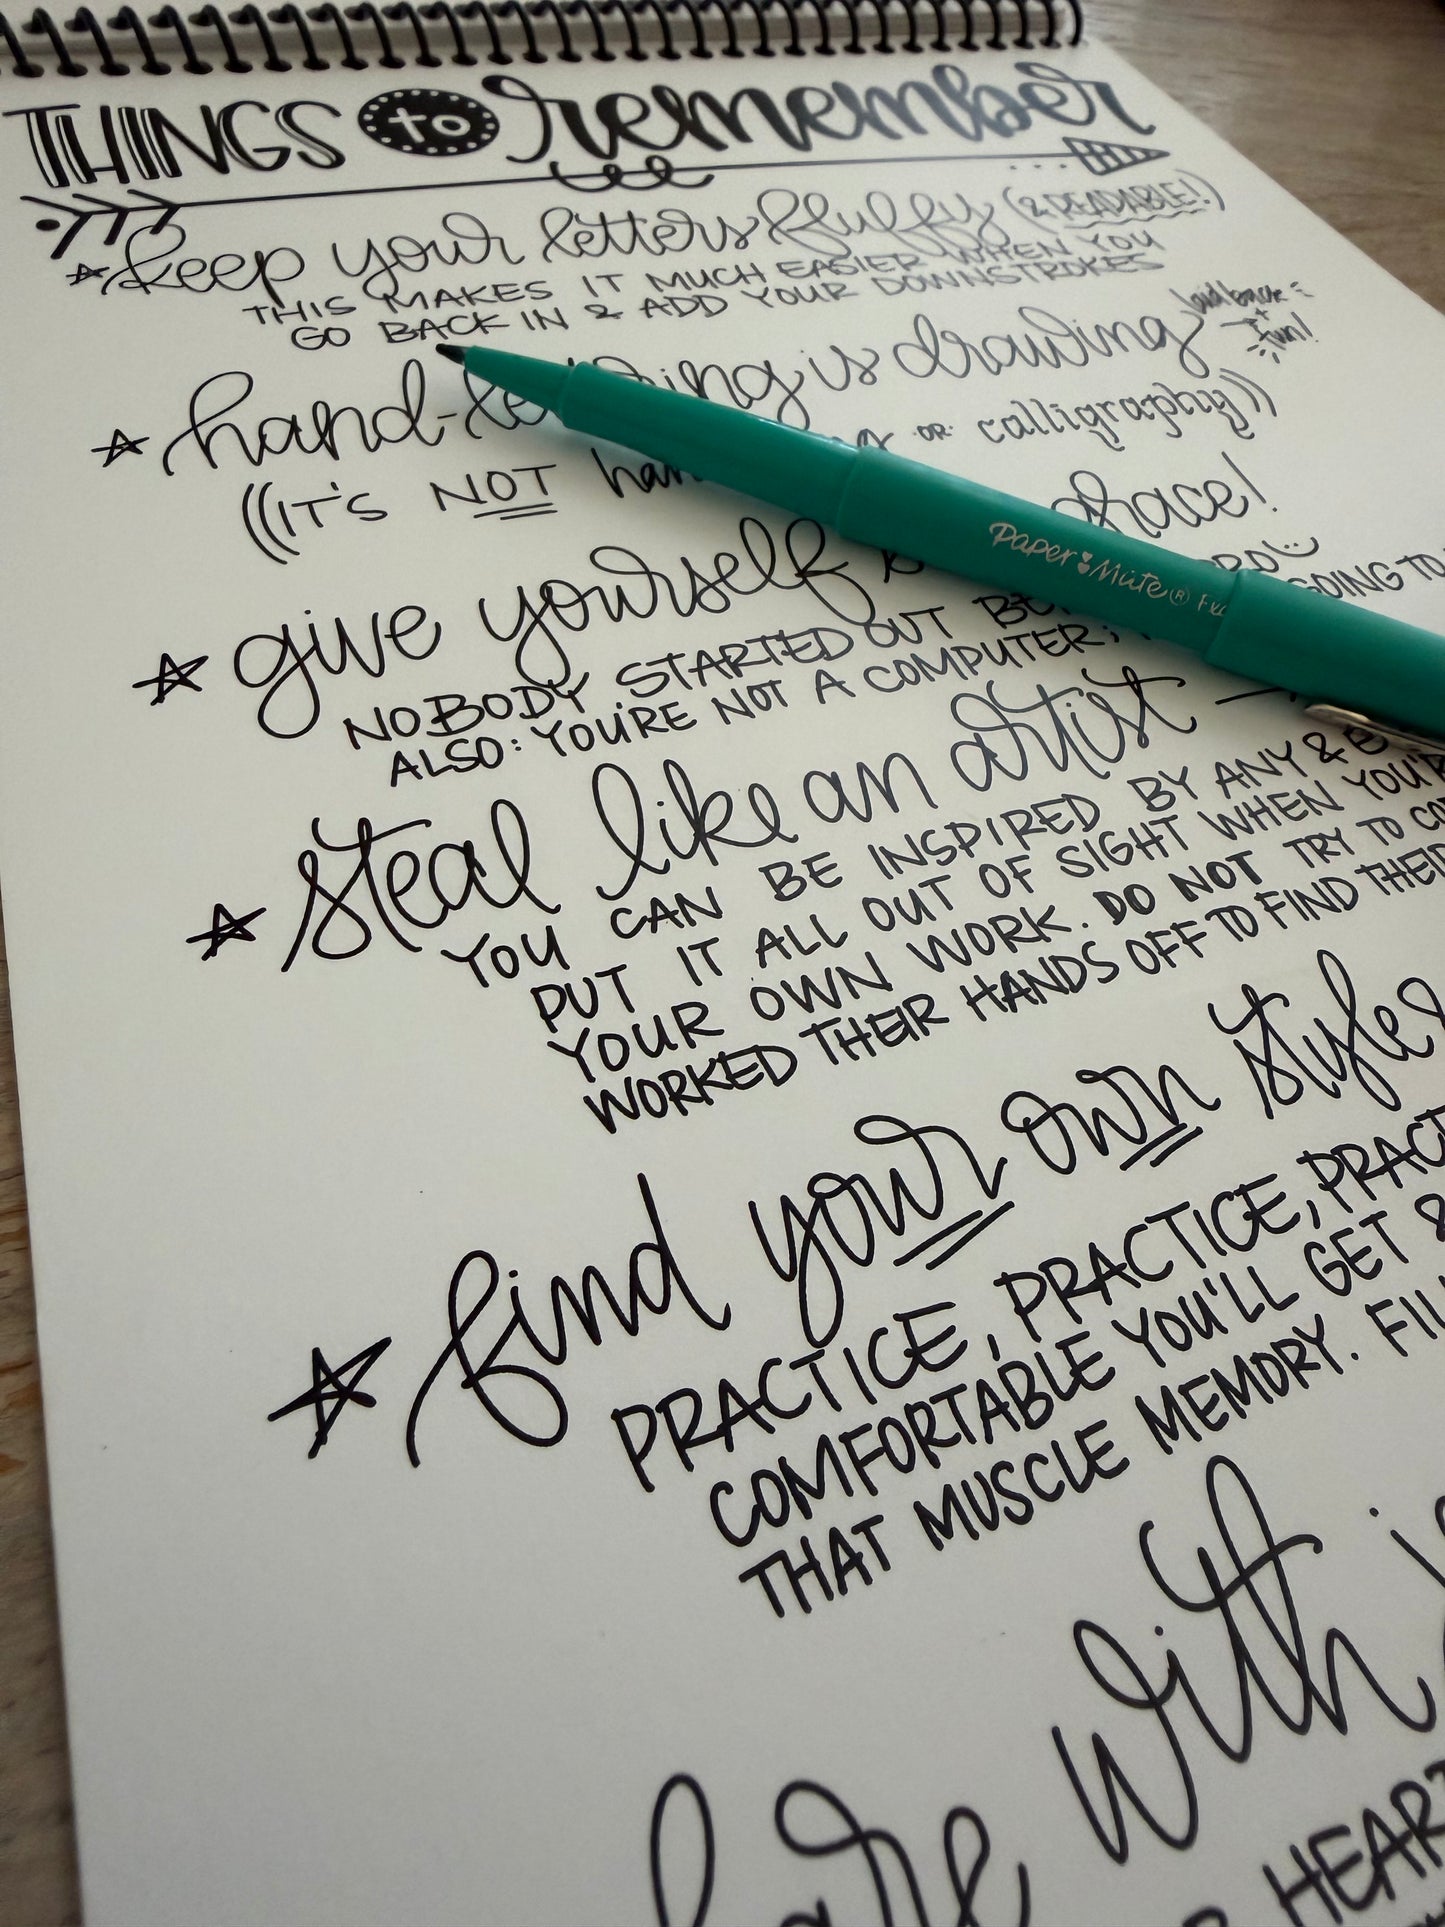 THINGS to remember
keep your letters fluffy (& READABLE!)
THIS MAKES IT MUCH EASIER WHEN YOU
GO BACK IN & ADD YOUR DOWNSTROKES
hand-lettering is drawing
laid back + fun!
((IT'S NOT OR calligraphy))
give yourself grace!
NOBODY STARTED OUT
ALSO: YOU'RE NOT A COMPUTER; GOING TO
steal like an artist
YOU CAN BE INSPIRED BY ANY &
PUT IT ALL OUT OF SIGHT WHEN YOU'R
YOUR OWN WORK. DO NOT TRY TO
WORKED THEIR HANDS OFF TO FIND THEIR
find your own style
PRACTICE, PRACTICE, PRACT
COMFORTABLE YOU'LL GET &
THAT MUSCLE MEMORY.
with
HEART
Paper Mate®